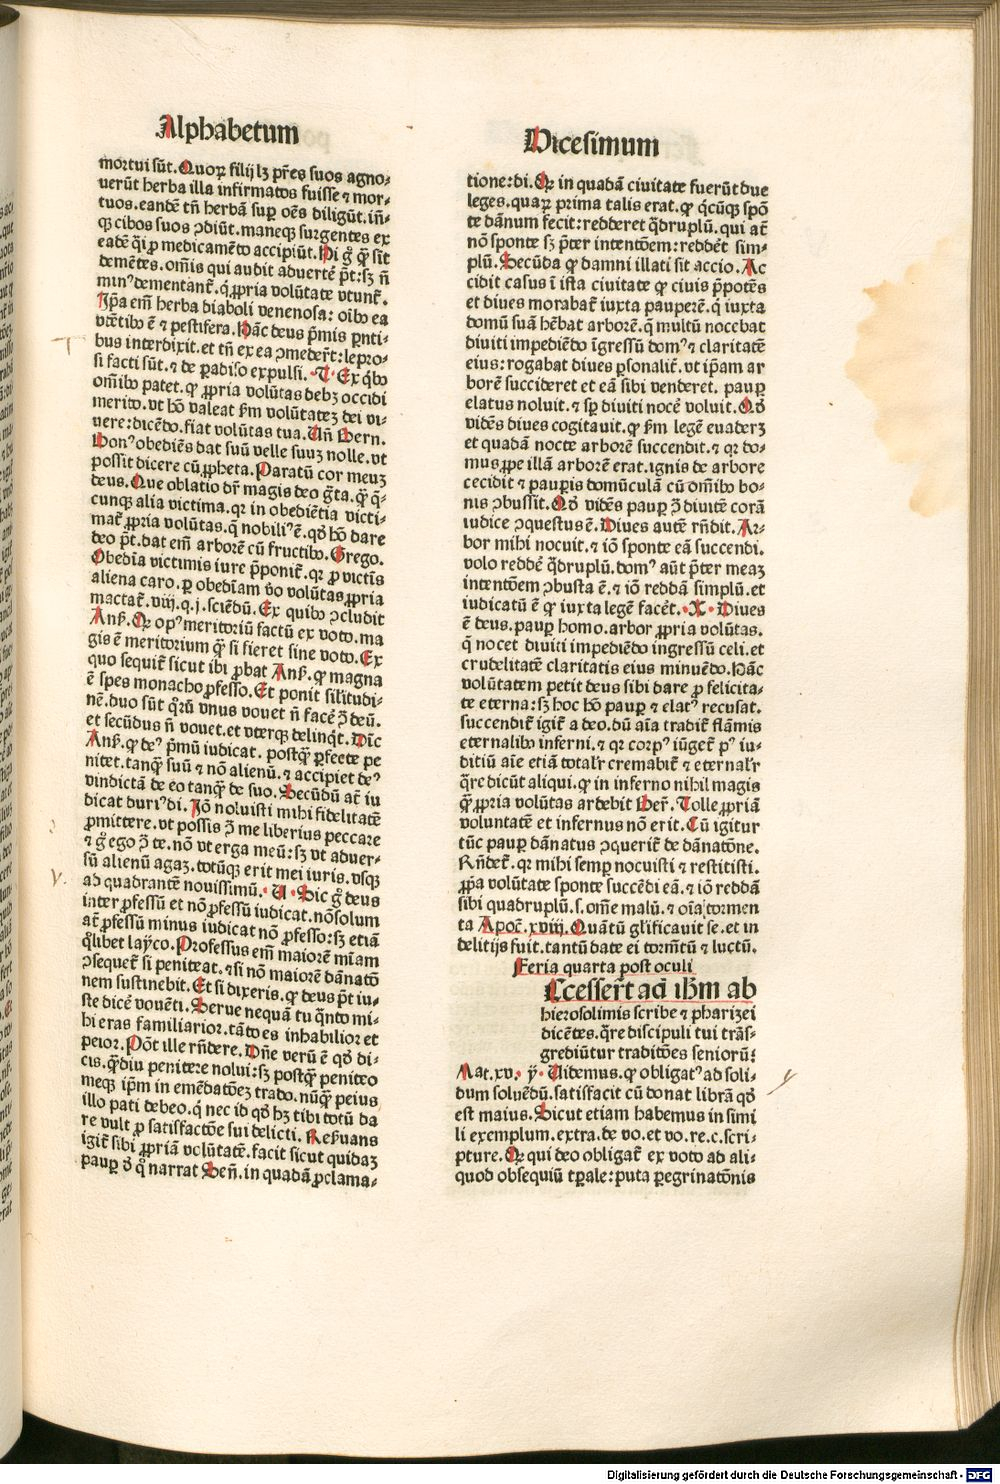 Alphabetum
mortui sũt. Quoꝝ filij lꝫ p̃res suos agno-
uerũt herba illa infirmatos fuisse ⁊ mor-
tuos. eandẽ tñ herbã suꝑ oẽs diligũt. iñ-
qꝫ cibos suos ꝯdiũt. maneqꝫ surgentes ex
eadẽ q̃i ꝓ medicamẽto accipiũt. Hi gͦ qͥ sit
demẽtes. om̃is qui audit aduertẽ p̃t: sꝫ ñ
minꝰ dementant᷑. q̃ ꝓpria volũtate vtunt᷑.
Ip̃a em̃ herba diaboli venenosa: oĩbꝰ ea
vtẽtibꝰ ẽ ⁊ pestifera. Hãc deus pͥmis pñti-
bus interdixit. et tñ ex ea ꝯmeder̃t: lepro-
si facti sũt. ⁊ de ꝑadiso expulsi. ·T· Ex qͥbꝰ
om̃ibꝰ patet. ꝙ ꝓpria volũtas debꝫ occidi
merito. vt hõ valeat ẜm volũtatẽꝫ dei vi-
uere: dicẽdo. fiat volũtas tua. Vñ Bern.
Bonꝰ obediẽs dat suũ velle suuꝫ nolle. vt
possit dicere cũ ꝓpheta. Paratũ cor meuꝫ
deus. Que oblatio dr̃ magis deo g̃ta. qͣꝫ q̃-
cunqꝫ alia victima. qꝛ in obediẽtia victi-
mat᷑ ꝓpria volũtas. qͣ nobiliꝰ ẽ. qͦd hõ dare
deo p̃t. dat em̃ arborẽ cũ fructibꝰ. Grego.
Obedĩa victimis iure p̃ponit᷑. qꝛ ꝓ victĩs
aliena caro. ꝑ obedĩam ṽo volũtas ꝓpria
mactat᷑. viij. q. j. sciẽdũ. Ex quibꝰ ꝯcludit
Anẜ. Qꝛ opꝰ meritoriũ factũ ex voto. ma
gis ẽ meritorium qͣꝫ si fieret sine voto. Ex
quo sequit᷑ sicut ibi ꝓbat Anẜ. ꝙ magna
ẽ spes monacho ꝓfesso. Et ponit silitudi-
nẽ. duo sũt qͦrũ vnus vouet ñ facẽ ꝯ̃ deũ.
et secũdus ñ vouet. et vterqꝫ delinqͥt. Dic̃
Anẜ. ꝙ deꝰ pͥmũ iudicat. postqͣꝫ ꝑfecte pe
nitet. tanqͣꝫ suũ ⁊ nõ alienũ. ⁊ accipiet deꝰ
vindictã de eo tanqͣꝫ de suo. Secũdũ at̃ iu
dicat duriꝰ di. Iõ noluisti mihi fidelitatẽ
ꝓmittere. vt possis ꝯ̃ me liberius peccare
⁊ gͦ ego ꝯ̃ te. nõ vt erga meũ: sꝫ vt aduer-
sũ alienũ agaꝫ. totũqꝫ erit mei iuris. vsqꝫ
ad quadrantẽ nouissimũ. ·U· Sic gͦ deus
inter ꝓfessũ et nõ ꝓfessũ iudicat. nõ solum
at̃ ꝓfessũ minus iudicat nõ ꝓfesso: sꝫ etiã
qͥlibet layco. Professus em̃ maiorẽ mĩam
ꝯsequet᷑ si peniteat. ⁊ si nõ maiorẽ dãnatõ
nem sustinebit. Et si dixeris. ꝙ deus p̃t iu-
ste dicẽ vouẽti. Serue nequã tu qͣnto mi-
hi eras familiarior. tãto es inhabilior et
peior. Põt ille rñdere. Dñe verũ ẽ qͦd di-
cis. qͣdiu penitere nolui: sꝫ postqͣꝫ peniteo
meqꝫ ip̃m in emẽdatõeꝫ trado. nũqͣꝫ peius
illo pati debeo. q̃ nec id qͦd hꝫ tibi totũ da
re vult ꝓ satisfactõe sui delicti. Reẜuans
igit᷑ sibi ꝓpriã volũtatẽ. facit sicut quidaꝫ
pauꝑ d̃ qͦ narrat Señ. in quadã ꝓclama-
Vicesimum
tione: di. Qꝛ in quadã ciuitate fuerũt due
leges. quaꝝ prima talis erat. ꝙ qͥcũqꝫ spõ
te dãnum fecit: redderet q̃druplũ. qui at᷑
nõ sponte sꝫ p̃ter intentõem: reddẽt sim-
plũ. Secũda ꝙ damni illati sit accio. Ac
cidit casus ĩ ista ciuitate ꝙ ciuis p̃potẽs
et diues morabat᷑ iuxta pauperẽ. q̃ iuxta
domũ suã hẽbat arborẽ. q̃ multũ nocebat
diuiti impediẽdo ĩgressũ domꝰ ⁊ claritatẽ
eius: rogabat diues ꝑsonalit᷑. vt ip̃am ar
borẽ succideret et eã sibi venderet. pauꝑ
elatus noluit. ⁊ sꝑ diuiti nocẽ voluit. Qͦd
vidẽs diues cogitauit. ꝙ ẜm legẽ euaderꝫ
et quadã nocte arborẽ succendit. ⁊ qꝛ do-
mus ꝓpe illã arborẽ erat. ignis de arbore
cecidit ⁊ pauꝑis domũculã cũ om̃ibꝰ bo-
nis ꝯbussit. Qͦd vidẽs pauꝑ ꝯ̃ diuitẽ corã
iudice ꝯquestus ẽ. Diues autẽ rñdit. Ar-
bor mihi nocuit. ⁊ iõ sponte eã succendi.
volo reddẽ q̃druplũ. domꝰ aũt p̃ter meaꝫ
intentõem ꝯbusta ẽ. ⁊ iõ reddã simplũ. et
iudicatũ ẽ ꝙ iuxta legẽ facẽt. ·X· Diues
ẽ deus. pauꝑ homo. arbor ꝓpria volũtas.
q̃ nocet diuiti impediẽdo ingressũ celi. et
crudelitatẽ claritatis eius minuẽdo. Hãc
volũtatem petit deus sibi dare ꝓ felicita-
te eterna: sꝫ hoc hõ pauꝑ ⁊ elatꝰ recusat.
succendit᷑ igit᷑ a deo. dũ aĩa tradit᷑ flãmis
eternalibꝰ inferni. ⁊ qꝛ corpꝰ iũget᷑ pꝰ iu-
ditiũ aĩe etiã total'r cremabit᷑ ⁊ eternal'r
q̃re dicũt aliqui. ꝙ in inferno nihil magis
qͣꝫ ꝓpria volũtas ardebit Beñ. Tolle ꝓpriã
voluntatẽ et infernus nõ erit. Cũ igitur
tũc pauꝑ dãnatus ꝯquerit᷑ de dãnatõne.
Rñdet᷑. qꝛ mihi semꝑ nocuisti ⁊ restitisti.
ꝓp̃a volũtate sponte succẽdi eã. ⁊ iõ reddã
sibi quadruplũ. s. om̃e malũ. ⁊ oĩa tormen
ta Apoc̃. xviij. Quãtũ gl̃ificauit se. et in
delitijs fuit. tantũ date ei torm̃tũ ⁊ luctũ.
Feria quarta post oculi
Accesser̃t ad ihm̃ ab
hierosolimis scribe ⁊ pharizei
dicẽtes. q̃re discipuli tui trãs-
grediũtur traditões senioꝝ:
Mat. xv. ·ẏ· Uidemus. ꝙ obligatꝰ ad soli-
dum soluẽdũ. satisfacit cũ donat librã qͦd
est maius. Sicut etiam habemus in simi
li exemplum. extra. de vo. et vo. re. c. scri-
pture. Qꝛ qui deo obligat᷑ ex voto ad ali-
quod obsequiũ tꝑale: puta ꝑegrinatõnis
T
v.
y
Digitalisierung gefördert durch die Deutsche Forschungsgemeinschaft - DFG